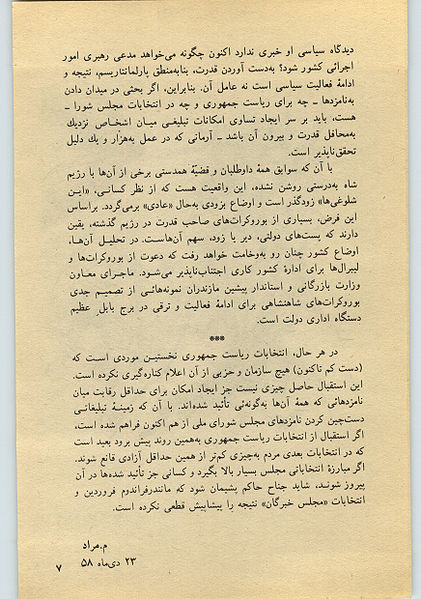 دیدگاه سیاسی او خبری ندارد اکنون چگونه می‌خواهد مدعی رهبری امور
اجرائی کشور شود؟ به‌دست آوردن قدرت، بنابه‌منطق پارلمانتاریسم، نتیجه و
ادامهٔ فعالیت سیاسی است نه عامل آن. بنابراین، اگر بحثی در میدان دادن
به‌نامزدها ـ چه برای ریاست جمهوری و چه در انتخابات مجلس شورا ـ
هست، باید بر سر ایجاد تساوی امکانات تبلیغی میان اشخاص نزدیك
به‌محافل قدرت و بیرون آن باشد ـ آرمانی که در عمل به‌هزار و یك دلیل
تحقق‌ناپذیر است.
با آن که سوابق همهٔ داوطلبان و قضیهٔ همدستی برخی از آن‌ها با رژیم
شاه به‌درستی روشن نشده، این واقعیت هست که از نظر کسانی، «این
شلوغی‌ها» زودگذر است و اوضاع بزودی به‌حال «عادی» برمی‌گردد. براساس
این فرض، بسیاری از بوروکرات‌های صاحب قدرت در رژیم گذشته، یقین
دارند که پست‌های دولتی، دیر یا زود، سهم آن‌هاست. در تحلیل آن‌ها،
اوضاع کشور چنان رو به‌وخامت خواهد رفت که دعوت از بوروکرات‌ها و
لیبرال‌ها برای ادارهٔ کشور کاری اجتناب‌ناپذیر می‌شود. ماجرای معاون
وزارت بازرگانی و استاندار پیشین مازندران نمونه‌هائی از تصمیم جدی
بوروکرات‌های شاهنشاهی برای ادامهٔ فعالیت و ترقی در برج بابل عظیم
دستگاه اداری دولت است.
***
در هر حال، انتخابات ریاست جمهوری نخستین موردی است که
(دست کم تاکنون) هیچ سازمان و حزبی از آن اعلام کناره‌گیری نکرده است.
این استقبال حاصل چیزی نیست جز ایجاد امکان برای حداقل رقابت میان
نامزدهائی که همهٔ آن‌ها به‌گونه‌ئی تأئید شده‌اند. با آن که زمینهٔ تبلیغاتی
دست‌چین کردن نامزدهای مجلس شورای ملی از هم اکنون فراهم شده است،
اگر استقبال از انتخابات ریاست جمهوری به‌همین روند پیش برود بعید است
که در انتخابات بعدی مردم به‌چیزی کم‌تر از همین حداقل آزادی قانع شوند.
اگر مبارزهٔ انتخاباتی مجلس بسیار بالا بگیرد و کسانی جز تأئید شده‌ها در آن
پیروز شوند، شاید جناح حاکم پشیمان شود که مانندرفراندوم فروردین و
انتخابات «مجلس خبرگان» نتیجه را پیشاپیش قطعی نکرده است.
م.مراد
۲۳ دی‌ماه ۵۸
۷